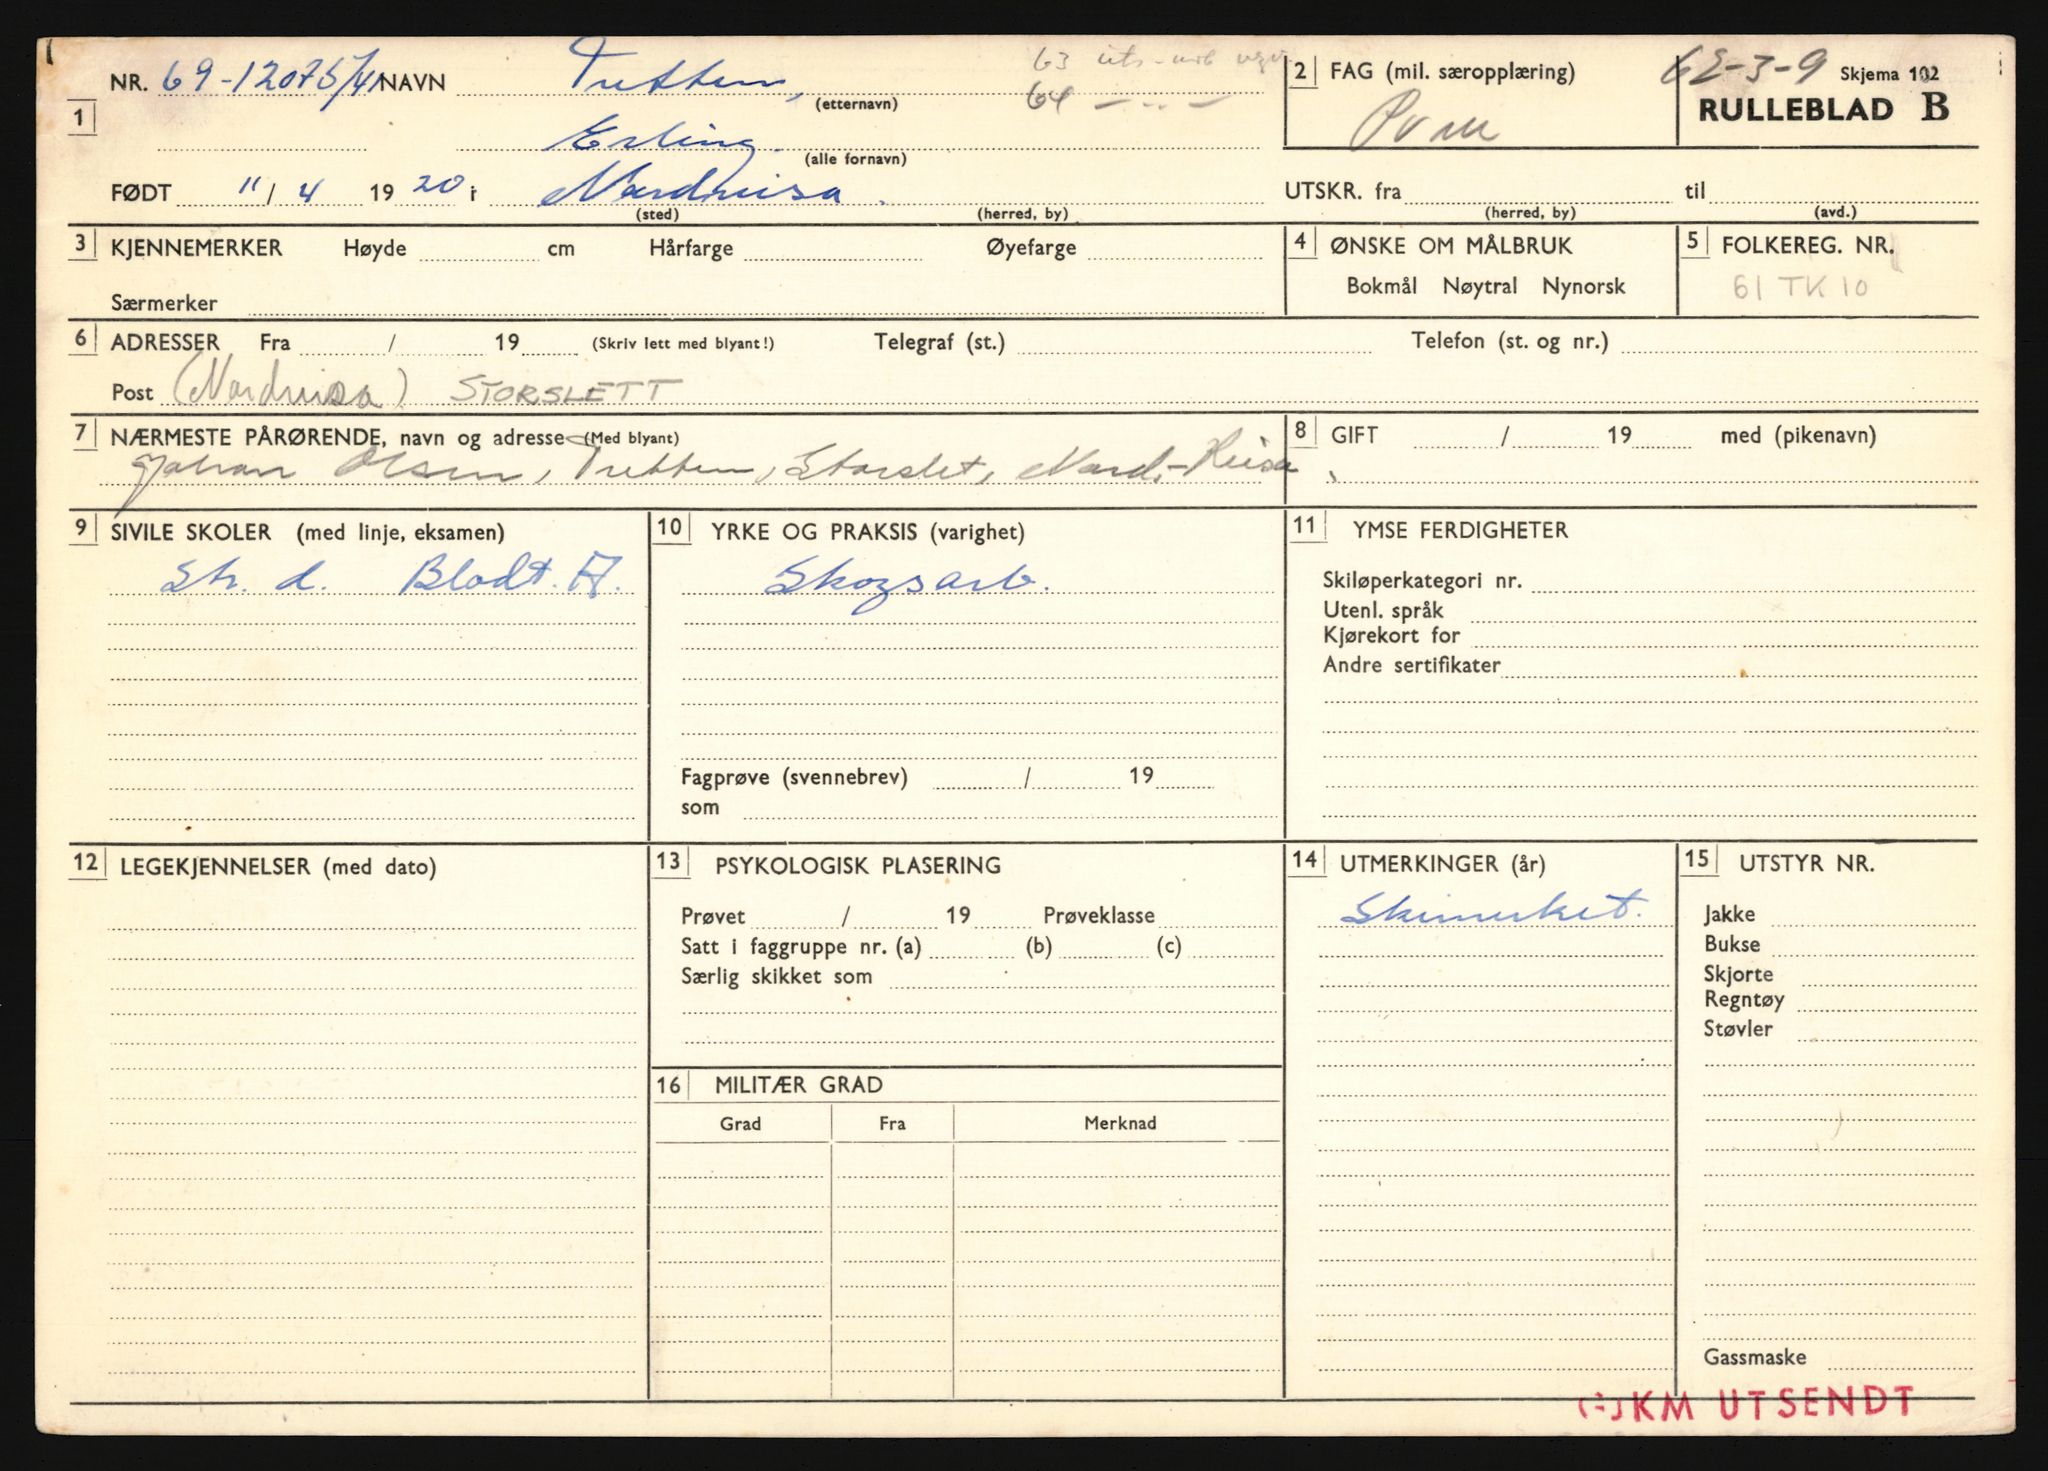 NR. 69-12075/41 NAVN Tretten,
(etternavn)
63 uts-
64 — . . —
2 FAG (mil. særopplæring)
Pvm
62-3-9 Skjema 102
RULLEBLAD B
1
Erling.
(alle fornavn)
FØDT 11/4 1920 i Nordreisa.
(sted) (herred, by)
UTSKR. fra til
(herred, by) (avd.)
3 KJENNEMERKER Høyde cm Hårfarge Øyefarge
Særmerker
4 ØNSKE OM MÅLBRUK
Bokmål Nøytral Nynorsk
5 FOLKEREG. NR.
61 TK 10
6 ADRESSER Fra / 19 (Skriv lett med blyant!) Telegraf (st.) Telefon (st. og nr.)
Post (Nordreisa) STORSLETT
7 NÆRMESTE PÅRØRENDE, navn og adresse (Med blyant)
Johan Olsen, Tretten, Storslet, Nord-Reisa.
8 GIFT / 19 med (pikenavn)
9 SIVILE SKOLER (med linje, eksamen)
Str. d. Blodt. A.
10 YRKE OG PRAKSIS (varighet)
Skogsarb.
Fagprøve (svennebrev) / 19
som
11 YMSE FERDIGHETER
Skiløperkategori nr.
Utenl. språk
Kjørekort for
Andre sertifikater
12 LEGEKJENNELSER (med dato)
13 PSYKOLOGISK PLASERING
Prøvet / 19 Prøveklasse
Satt i faggruppe nr. (a) (b) (c)
Særlig skikket som
14 UTMERKINGER (år)
Skimerket.
15 UTSTYR NR.
Jakke
Bukse
Skjorte
Regntøy
Støvler
Gassmaske
16 MILITÆR GRAD
Grad Fra Merknad
KM UTSENDT